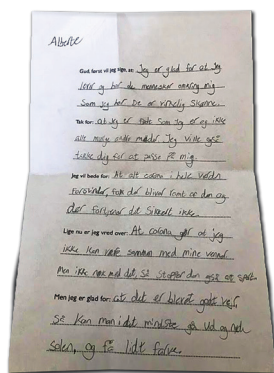 Alberte
Gud, først vil jeg sige, at: Jeg er glad for at jeg
lever og har de mennesker omkring mig
Som jeg har De er virkelig skønne.
Tak for: at jeg er født som jeg er og ikke
alle mulige andre måder. Jeg ville også
takke dig for at passe På mig.
Jeg vil bede for: At alt corona i hele verden
forsvinder, for der bliver ramt af den og
der forsvinder det sikkert ikke.
Lige nu er jeg vred over: At corona gør at jeg
ikke kan være sammen med mine venner
Men ikke nok med det, så stopper den også at
Men jeg er glad for: at det er blevet godt vejr,
så kan man i det mindste gå ud og nyde
solen, og få lidt farve.